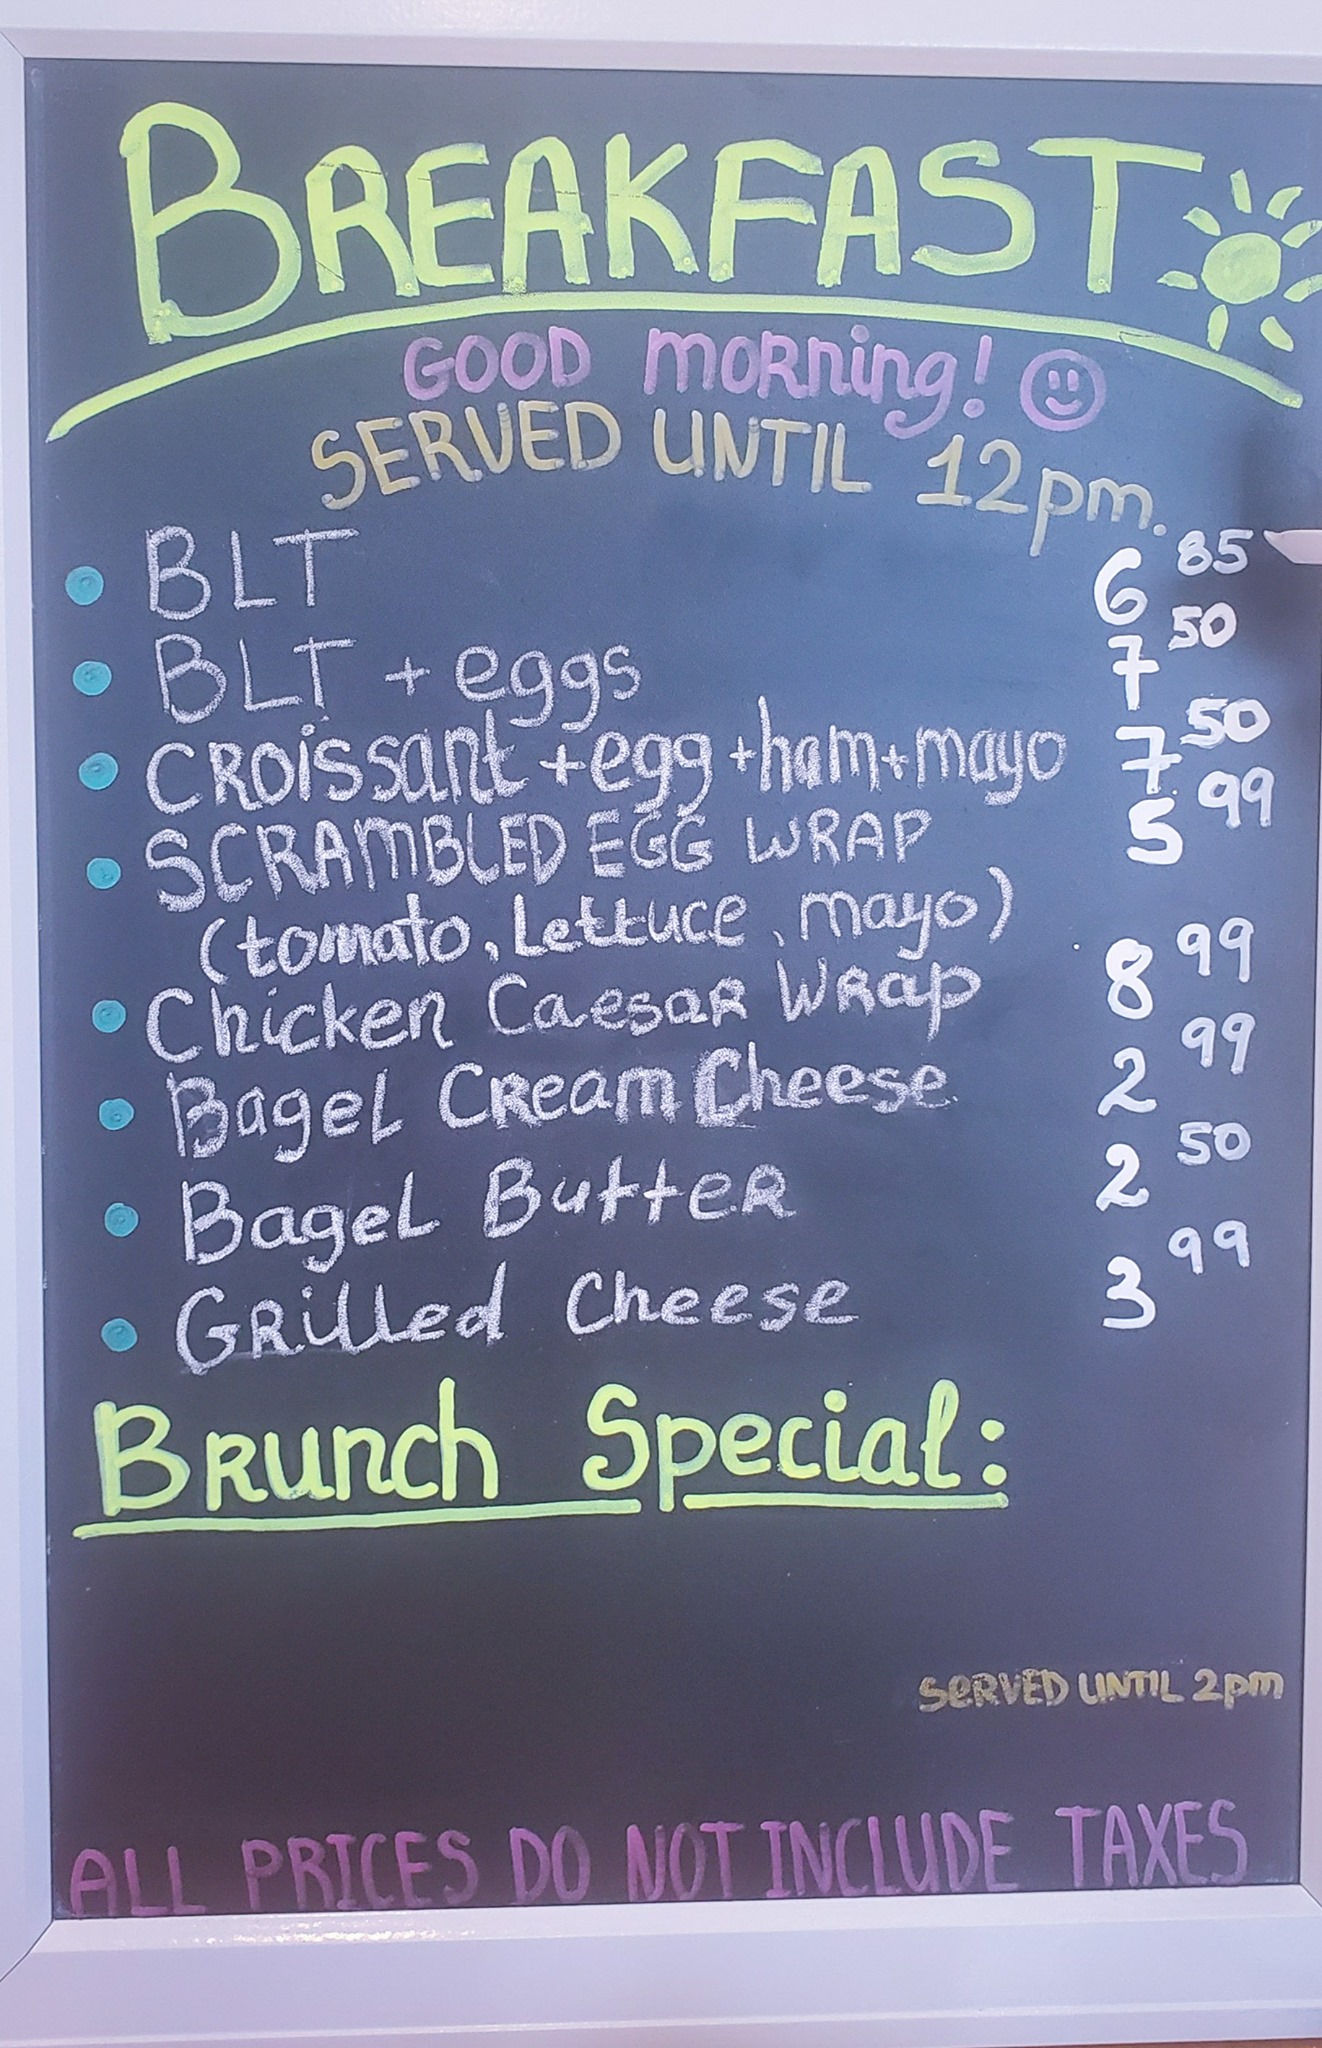 BREAKFAST
GOOD morning!
SERVED UNTIL 12pm.
BLT 6 85
BLT + eggs 7 50
CROissant +egg +ham+mayo 7 50
SCRAMBLED EGG WRAP 5 99
(tomato, Lettuce, mayo)
Chicken Caesar Wrap 8 99
Bagel Cream Cheese 2 99
Bagel Butter 2 50
Grilled Cheese 3 99
Brunch Special:
SERVED UNTIL 2pm
ALL PRICES DO NOT INCLUDE TAXES